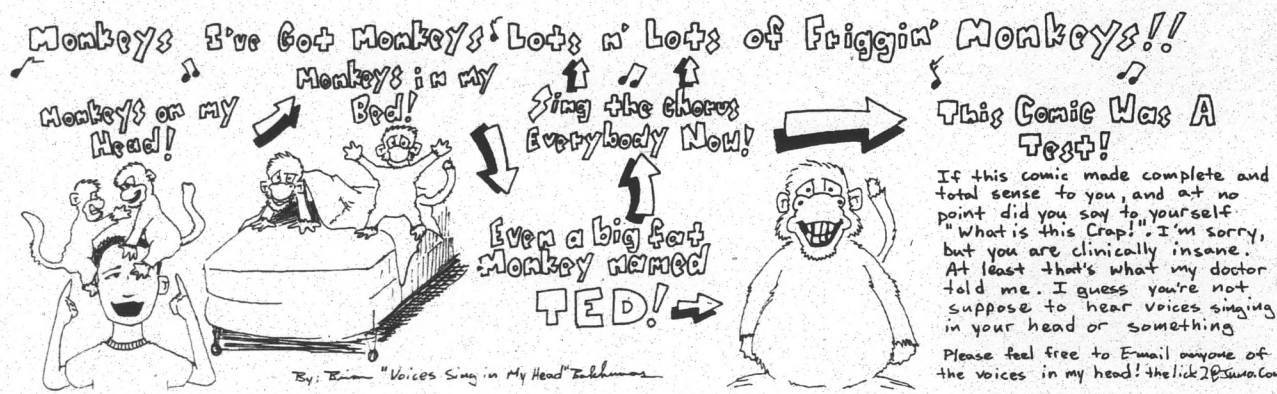 Monkeys I've Got Monkeys Lots n' Lots of Friggin' Monkeys!!
Monkeys on my
Head!
Monkeys in my
Bed!
Even a big fat
Monkey named
TED!
Sing the chorus
Everybody Now!
This Comic Was A
Test!
If this comic made complete and
total sense to you, and at no
point did you say to yourself
"What is this Crap!". I'm sorry,
but you are clinically insane.
At least that's what my doctor
told me. I guess you're not
suppose to hear voices singing
in your head or something
Please feel free to E-mail anyone of
the voices in my head! thelick2@Juno.Com
By: "Voices Sing in My Head"